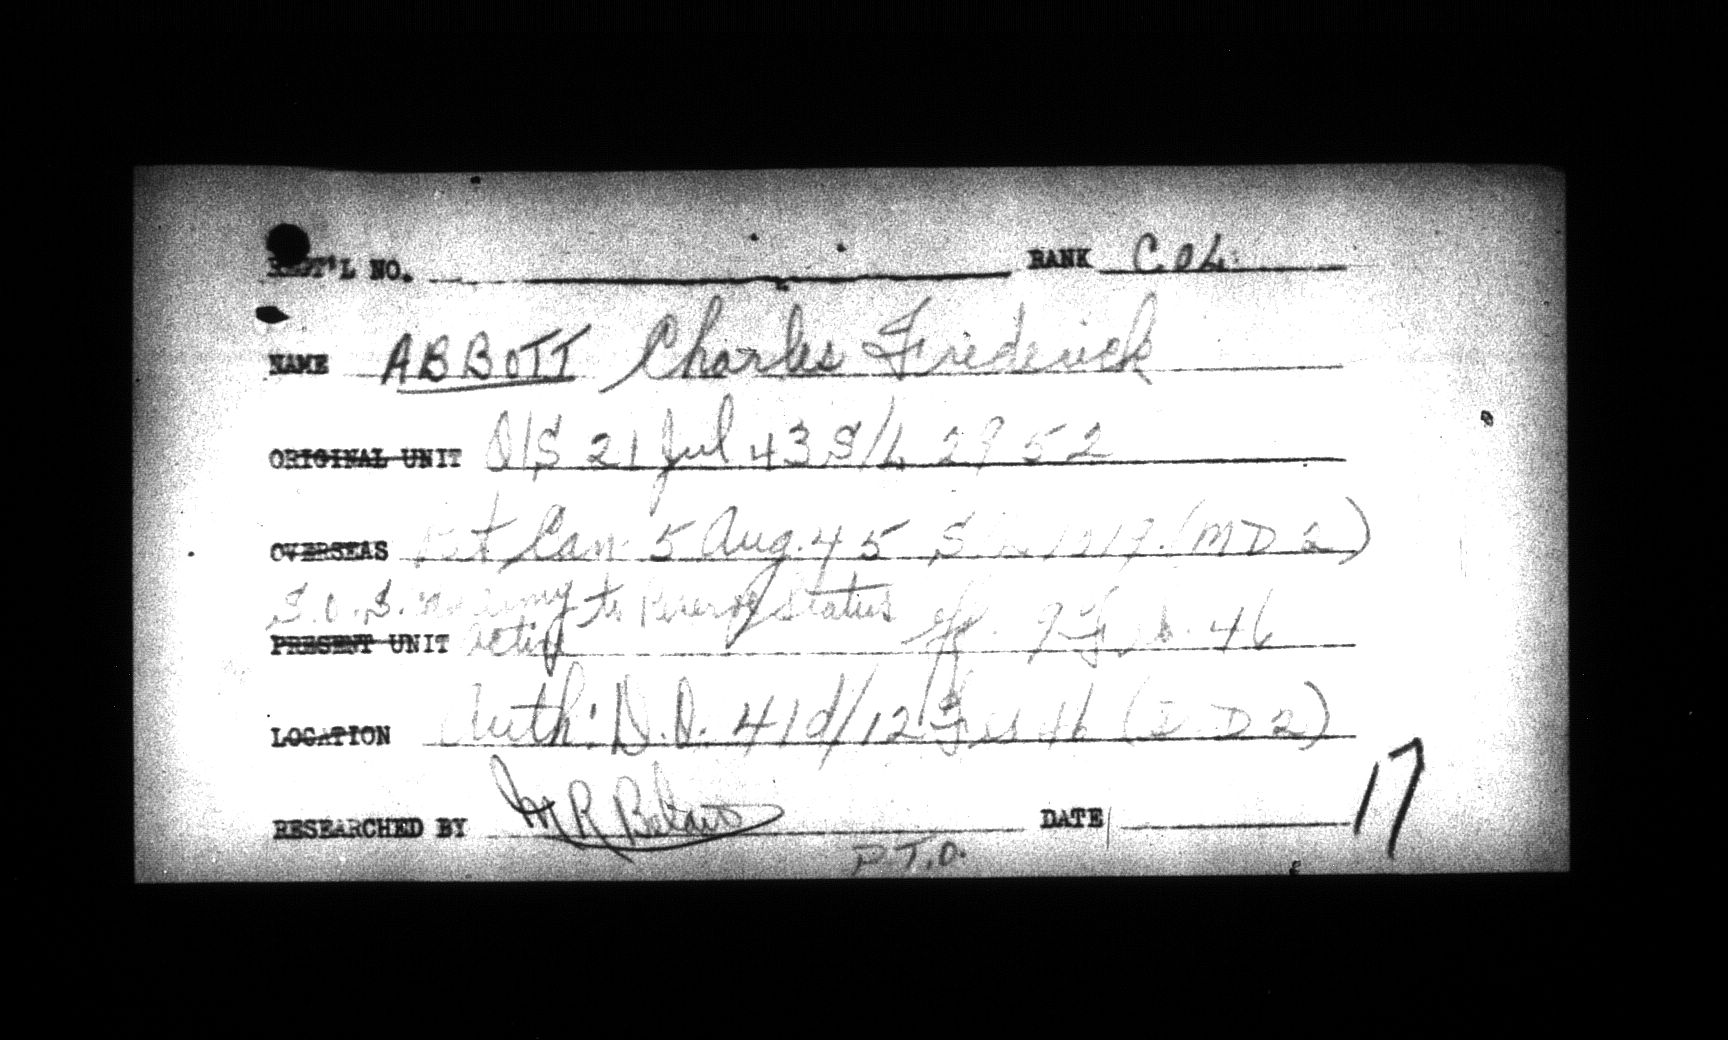 REGT'L NO. RANK COL.
NAME ABBOTT Charles Frederick
ORIGINAL UNIT O/S 21 Jul 43 S/L 2952
OVERSEAS Ret Can. 5 Aug. 45 (MD 2)
S.O.S. army to Reserve Status
PRESENT UNIT eff. 9 Feb. 46
LOCATION Auth: D.O. 41d/12 Feb 46 (D 2)
RESEARCHED BY M R DATE
P.T.O.
17